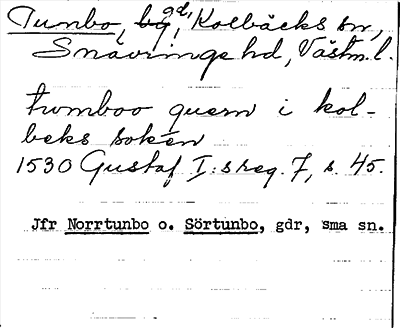 Tumbo, gd, Kolbäcks sn,
Snävringe hd, Västm.l.
twmboo quern i kol-
beks soken
1530 Gustaf I:s reg. 7, s. 45.
Jfr Norrtunbo o. Sörtunbo, gdr, sma sn.